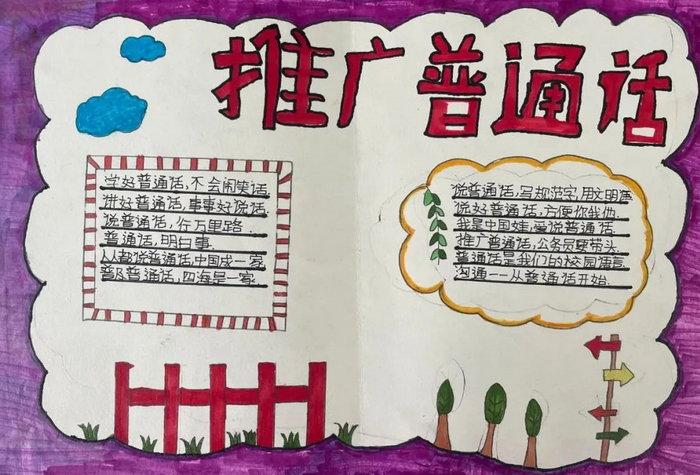 推广普通话
学好普通话,不会闹笑话.
讲好普通话,事事好说话.
说普通话,行万里路.
普通话,明白事.
人人都说普通话,中国成一家.
普及普通话,四海是一家.
说普通话,写规范字,用文明语
说好普通话,方便你我他.
我是中国娃,爱说普通话.
推广普通话,公务员要带头.
普通话是我们的校园语言
沟通--从普通话开始.